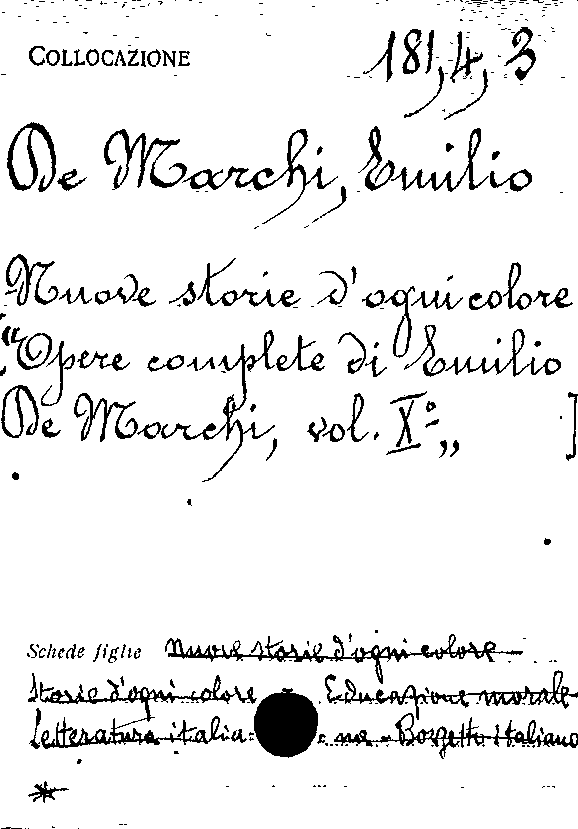 COLLOCAZIONE 181,4,3
De Marchi, Emilio
Nuove storie d'ogni colore
["Opere complete di Emilio
De Marchi, vol. X°„ ]
Schede figlie Nuove storie d'ogni colore
Storie d'ogni colore - Educazione morale
Letteratura italia= = na - Bozzetto italiano
*